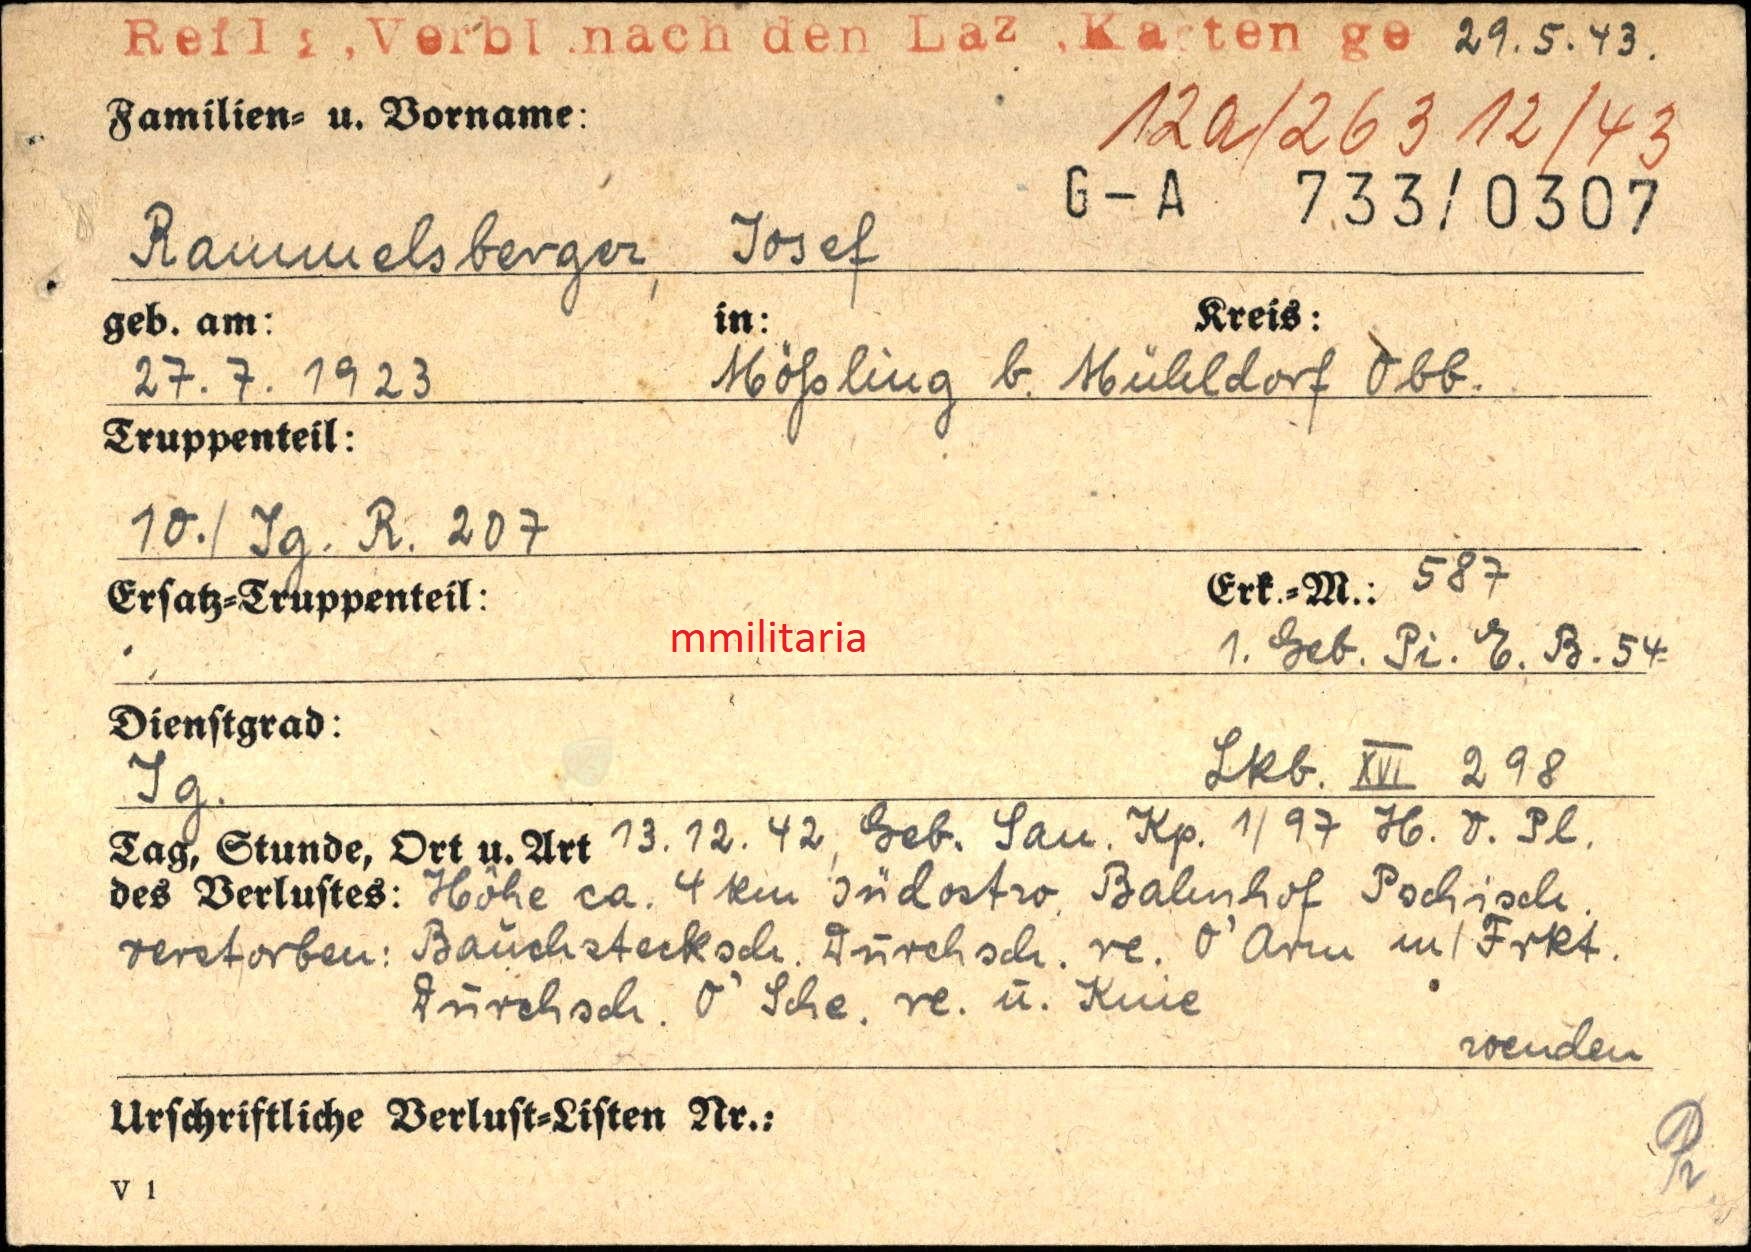 Refl: ,Verbl.nach den Laz ,Karten ge 29.5.43.
Familien- u. Vorname:
12a/263 12/43
G-A 733/0307
Rammelsberger, Josef
geb. am: in: Kreis:
27. 7. 1923 Mößling b. Mühldorf Obb.
Truppenteil:
10./ Jg. R. 207
Ersatz-Truppenteil: Erk.-M.: 587
mmilitaria
1. Geb. Pi. E. B. 54-
Dienstgrad:
Jg. Lkb. XVI 298
Tag, Stunde, Ort u. Art 13.12.42, Geb. San. Kp. 1/97 H. V. Pl.
des Verlustes: Höhe ca. 4 km südostw. Bahnhof Pschisch.
verstorben: Bauchstecksch. Durchsch. re. O'Arm m/Frkt.
Durchsch. O'Sche. re. u. Knie
wenden
Urschriftliche Verlust-Listen Nr.:
V 1